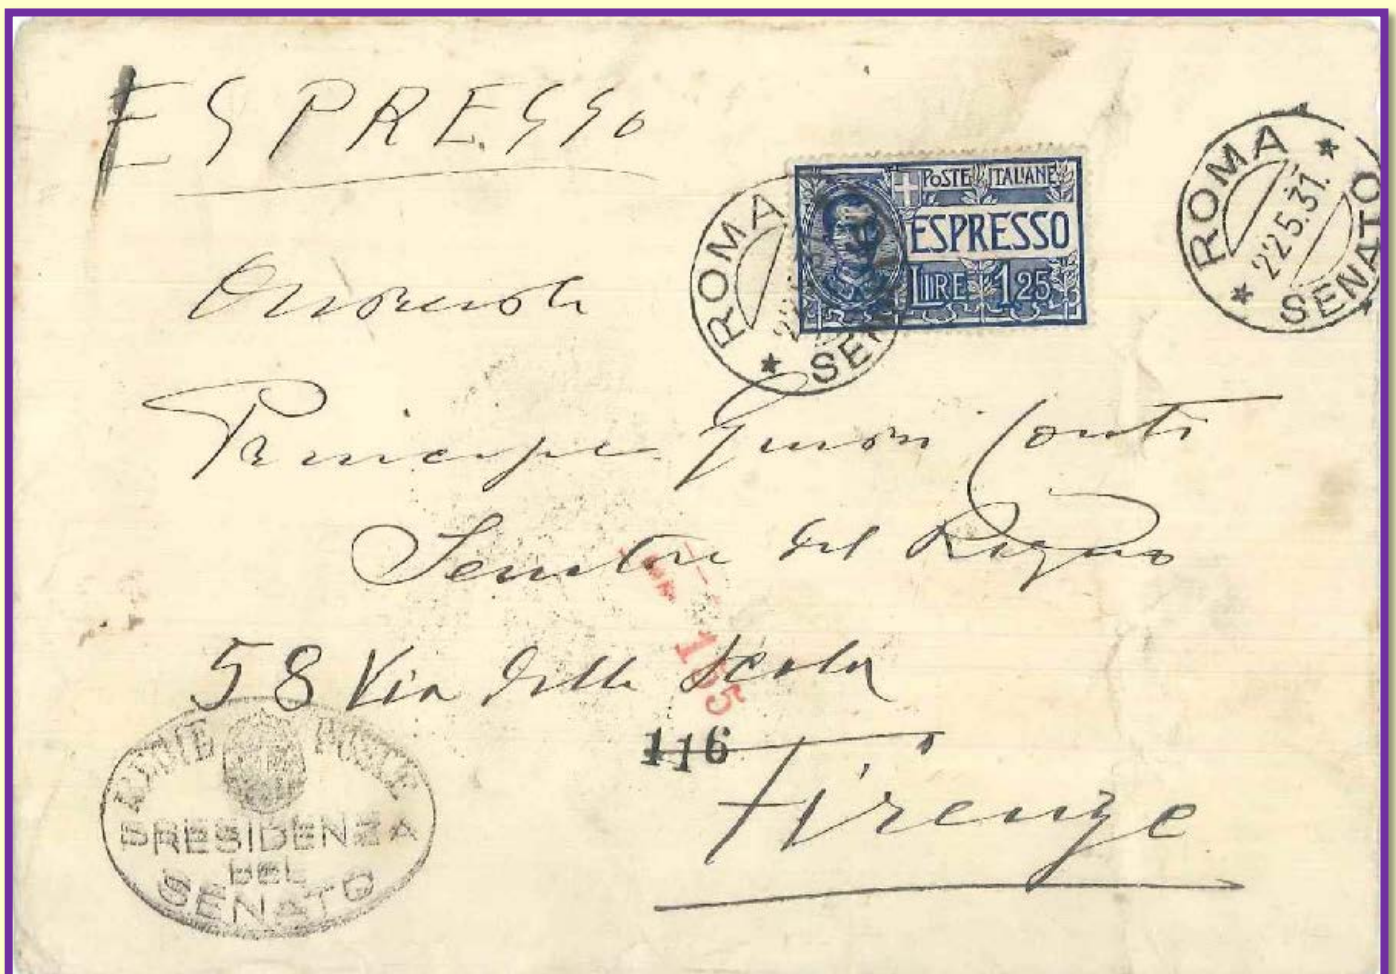 ESPRESSO
POSTE ITALIANE
ESPRESSO
LIRE 1,25
ROMA
SENATO
22.5.31.
ROMA
22
SEN
Onorevole
Principe Ginori Conti
Senatore del Regno
58 Via della Scala
155
116
Firenze
REGIE POSTE
PRESIDENZA
DEL
SENATO